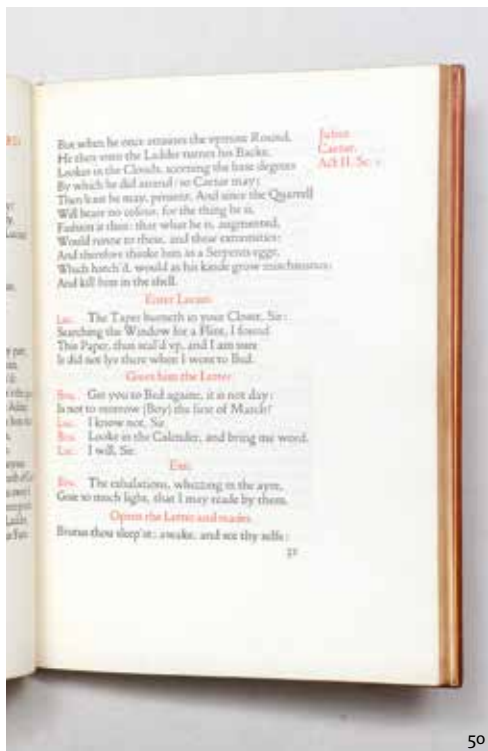 But when he once attaines the vpmost Round,
He then vnto the Ladder turnes his Backe,
Lookes in the Clouds, scorning the base degrees
By which he did ascend: so Caesar may;
Then least he may, preuent. And since the Quarrell
Will beare no colour, for the thing he is,
Fashion it thus; that what he is, augmented,
Would runne to these, and these extremities:
And therefore thinke him as a Serpents egge,
Which hatch'd, would as his kinde grow mischieuous;
And kill him in the shell.
Enter Lucius.
Luc. The Taper burneth in your Closet, Sir:
Searching the Window for a Flint, I found
This Paper, thus seal'd vp, and I am sure
It did not lye there when I went to Bed.
Giues him the Letter.
Bru. Get you to Bed againe, it is not day:
Is not to morrow (Boy) the first of March?
Luc. I know not, Sir.
Bru. Looke in the Calender, and bring me word.
Luc. I will, Sir.
Exit.
Bru. The exhalations, whizzing in the ayre,
Giue so much light, that I may reade by them.
Opens the Letter and reades.
Brutus thou sleep'st; awake, and see thy selfe:
Julius
Caesar.
Act II. Sc. 1.
31
50